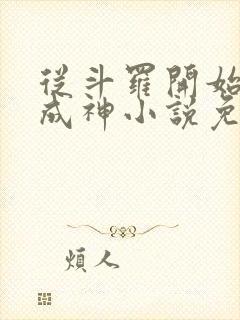 從斗羅開始
成神小說免
煩人